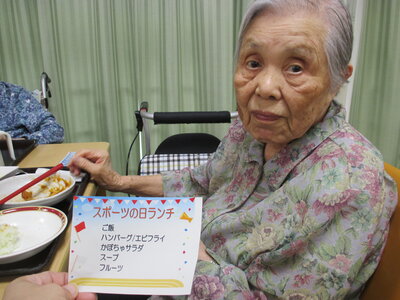 スポーツの日ランチ
ご飯
ハンバーグ/エビフライ
かぼちゃサラダ
スープ
フルーツ